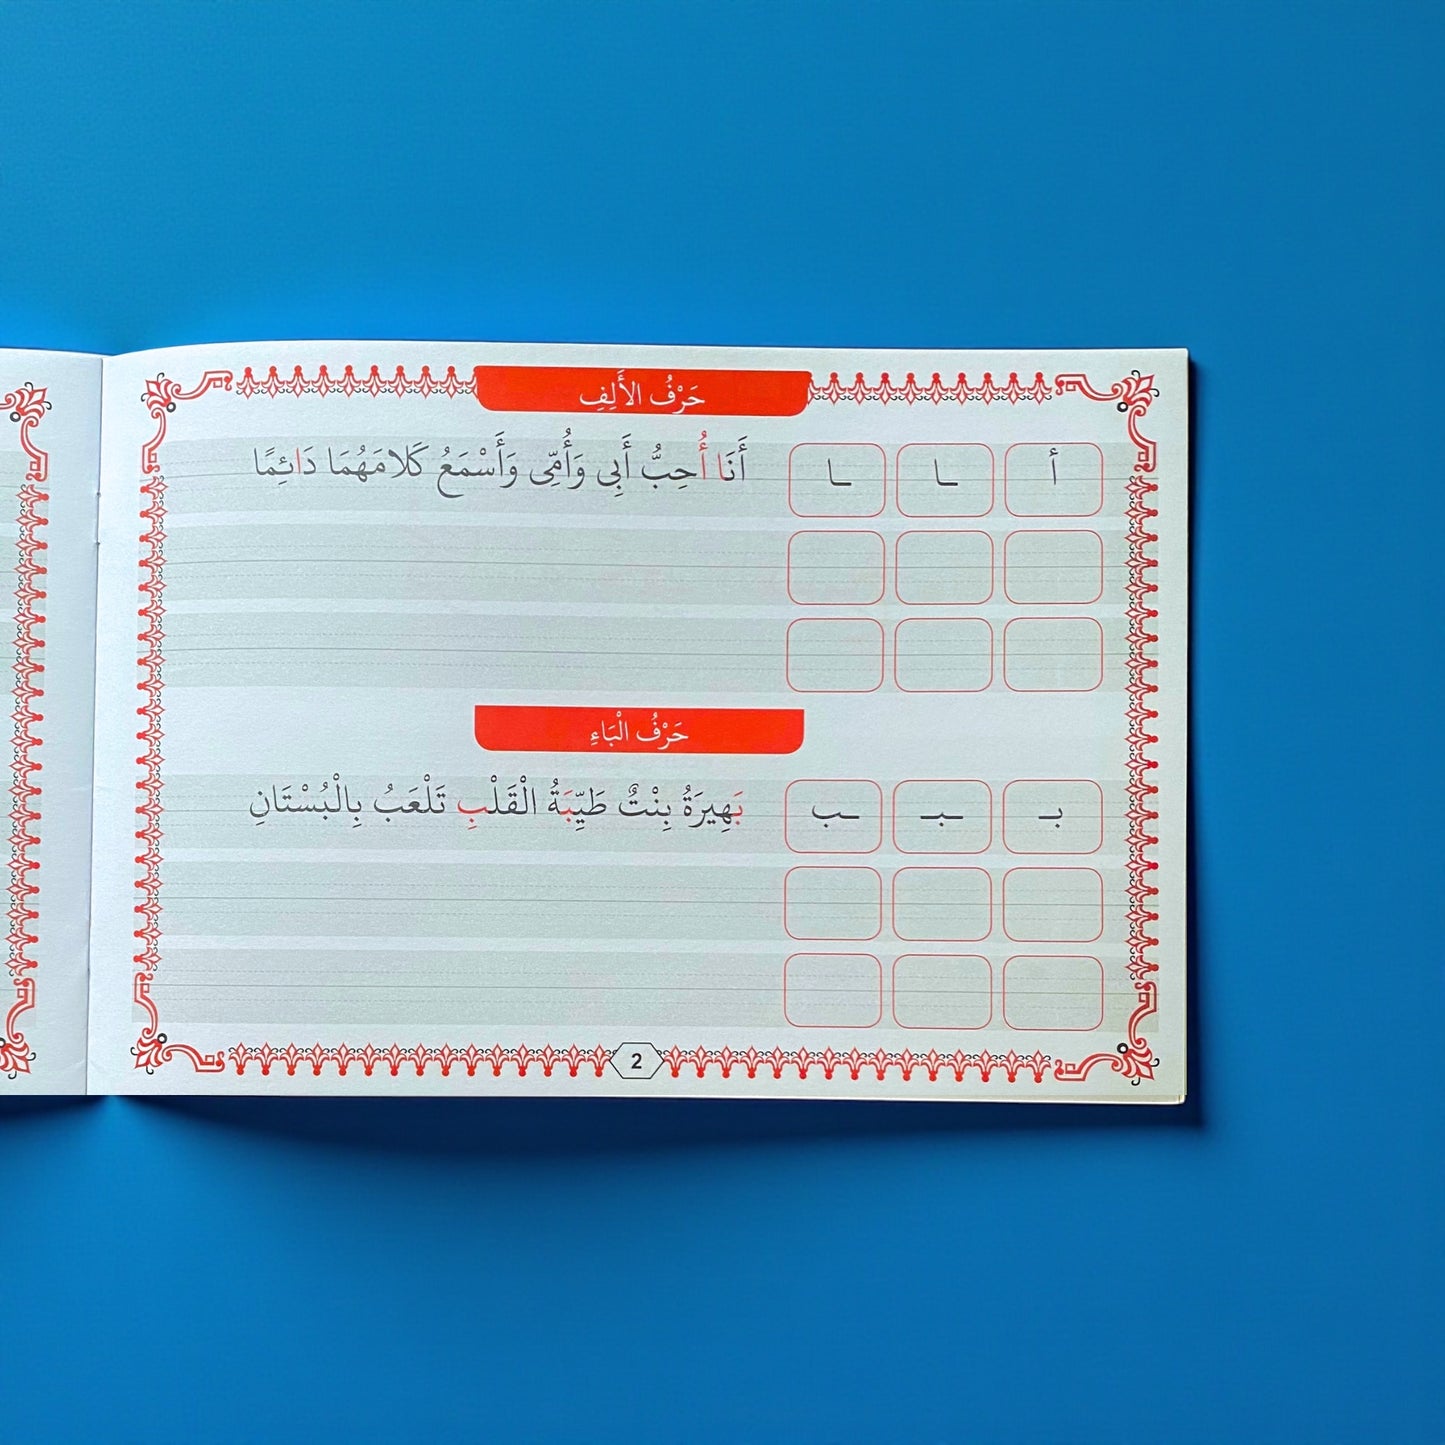 حَرْفُ الأَلِفِ
أ ـا ـا
أَنَا أُحِبُّ أَبِى وَأُمِّى وَأَسْمَعُ كَلامَهُمَا دَائِمًا
حَرْفُ الْبَاءِ
بـ ـبـ ـب
بَهِيرَةُ بِنْتٌ طَيِّبَةُ الْقَلْبِ تَلْعَبُ بِالْبُسْتَانِ
2